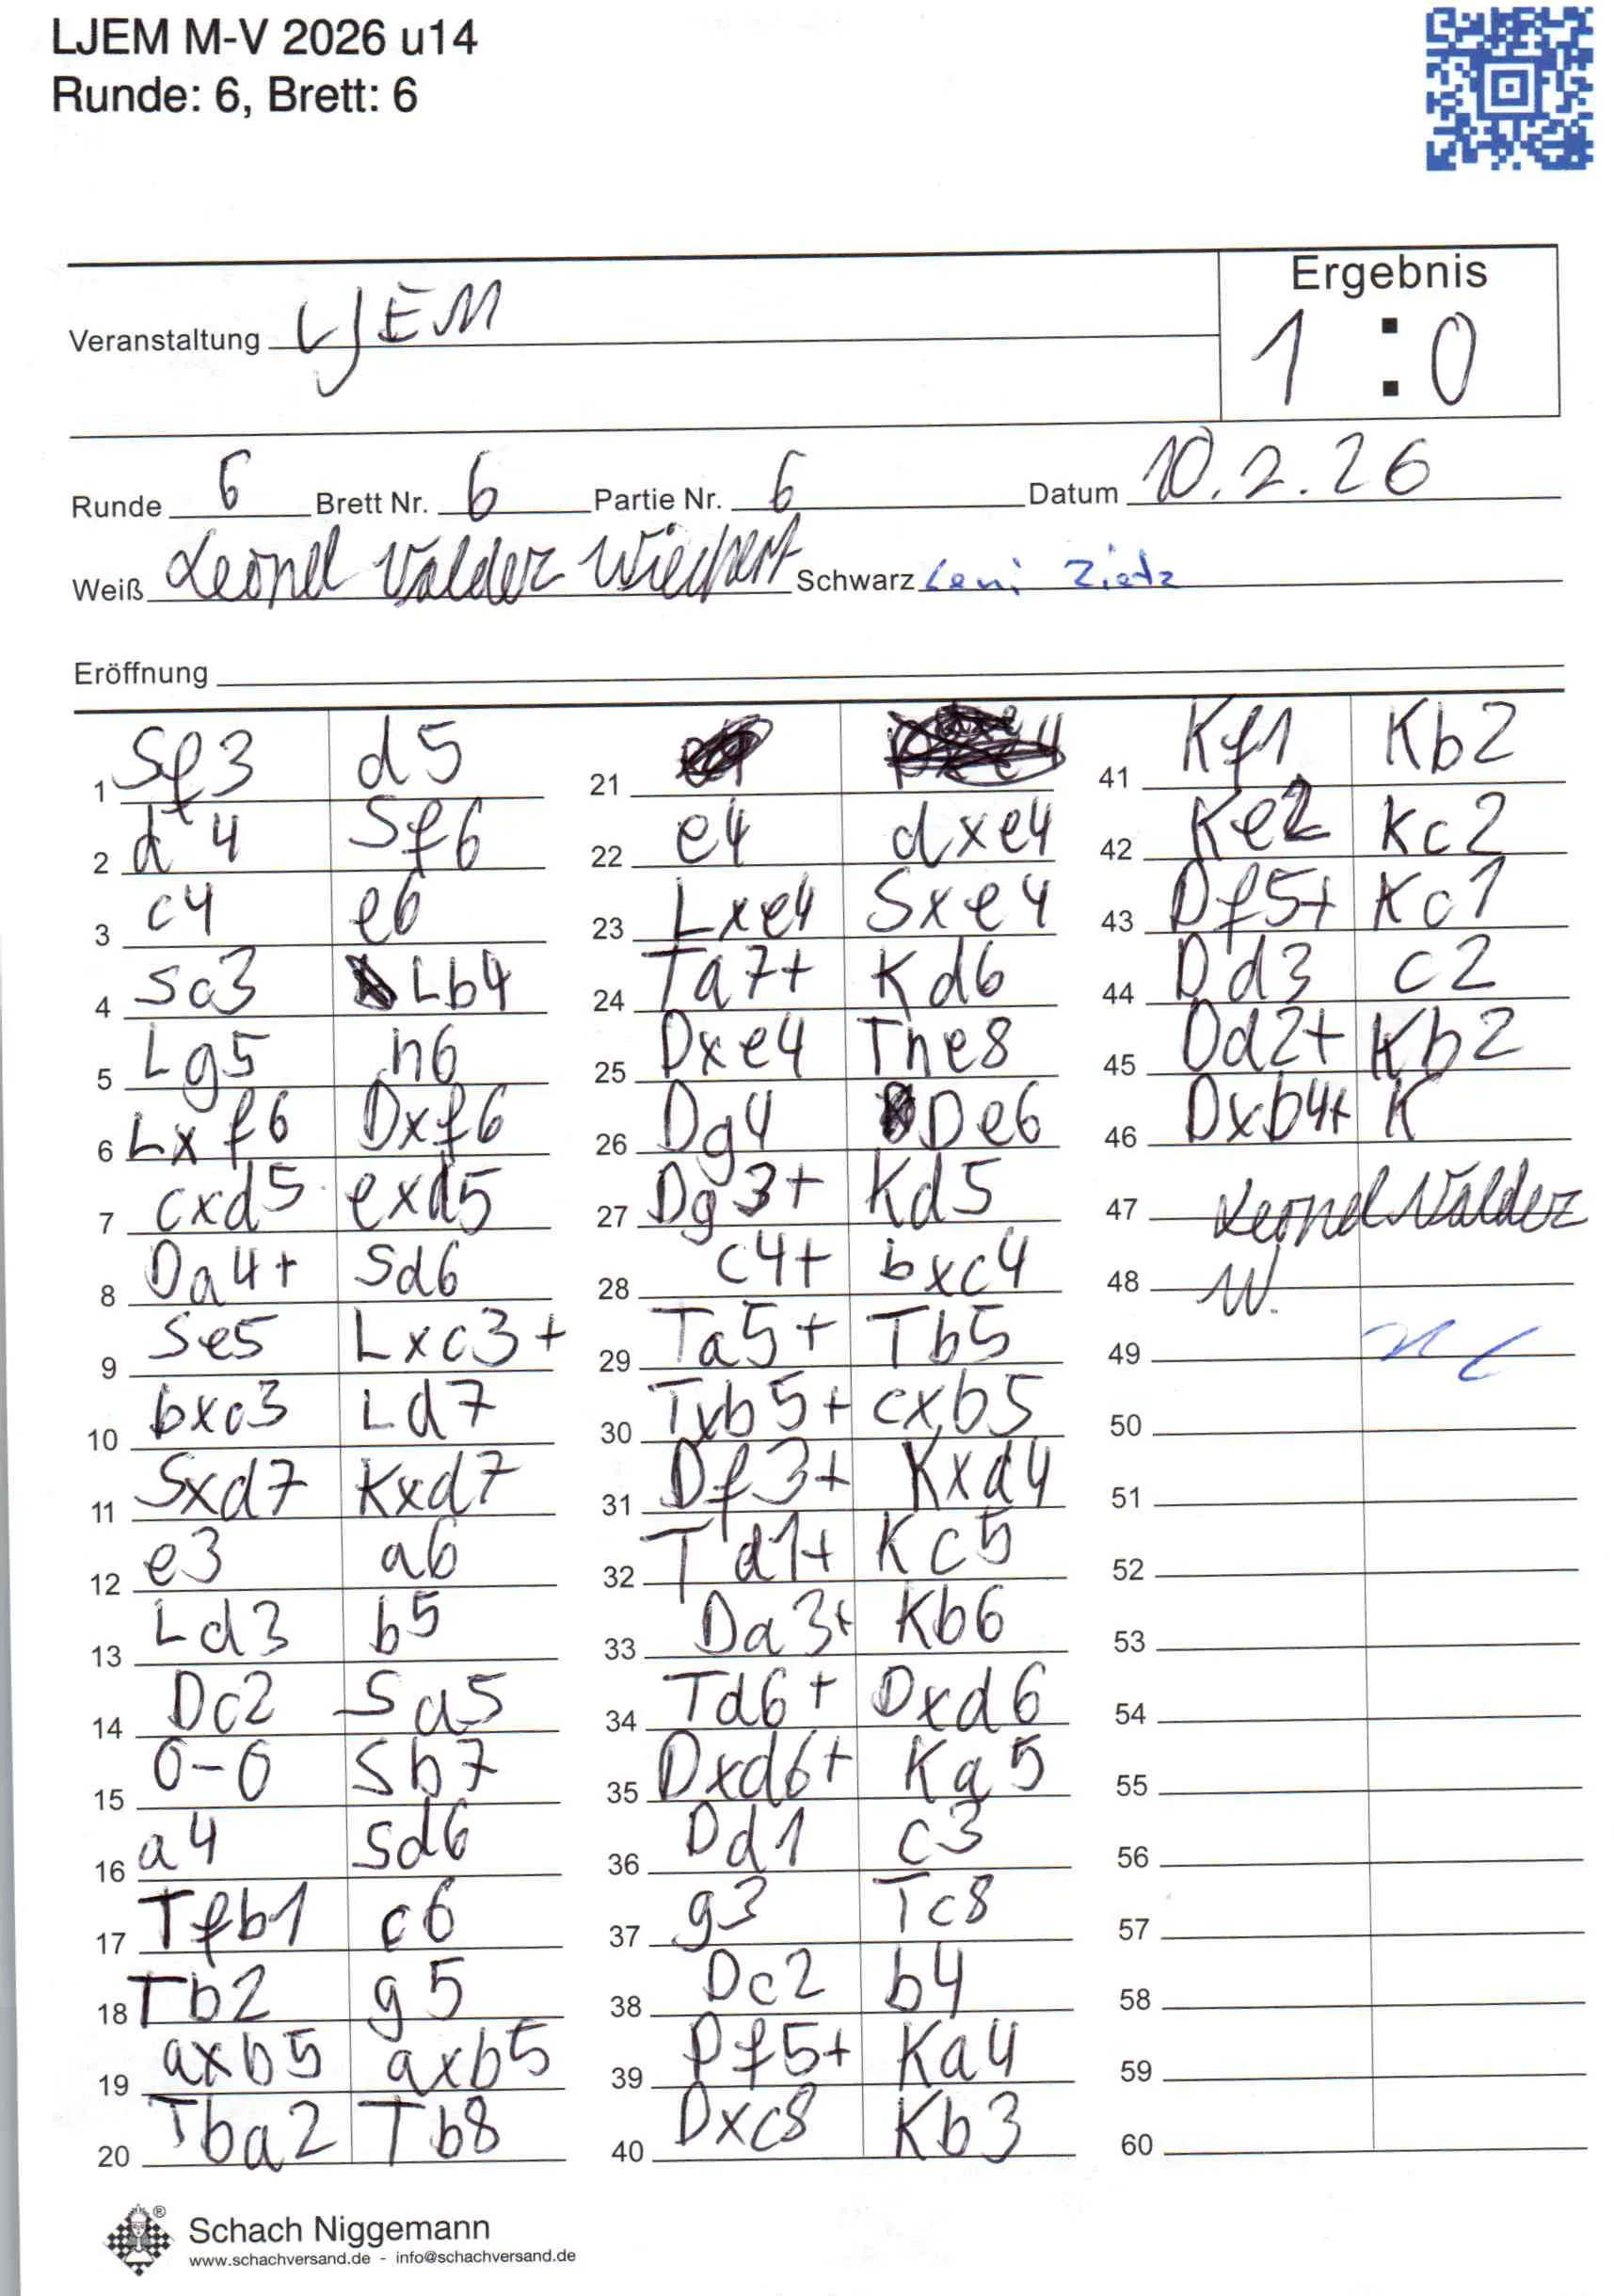 LJEM M-V 2026 u14
Runde: 6, Brett: 6
Ergebnis
Veranstaltung LJEM
1 : 0
Runde 6 Brett Nr. 6 Partie Nr. 6 Datum 10.2.26
Weiß Leonel Valdez Wiechert Schwarz Leni Zietz
Eröffnung
1 Sf3 d5
2 d4 Sf6
3 c4 e6
4 Sc3 Lb4
5 Lg5 h6
6 Lxf6 Dxf6
7 cxd5 exd5
8 Da4+ Sd6
9 Se5 Lxc3+
10 bxc3 Ld7
11 Sxd7 Kxd7
12 e3 a6
13 Ld3 b5
14 Dc2 Sa5
15 0-0 Sb7
16 a4 Sd6
17 Tfb1 c6
18 Tb2 g5
19 axb5 axb5
20 Tba2 Tb8
21
22 e4 dxe4
23 Lxe4 Sxe4
24 Ta7+ Kd6
25 Dxe4 The8
26 Dg4 De6
27 Dg3+ Kd5
28 c4+ bxc4
29 Ta5+ Tb5
30 Txb5+ cxb5
31 Df3+ Kxd4
32 Td1+ Kc5
33 Da3+ Kb6
34 Td6+ Dxd6
35 Dxd6+ Ka5
36 Dd1 c3
37 g3 Tc8
38 Dc2 b4
39 Df5+ Ka4
40 Dxc8 Kb3
41 Kf1 Kb2
42 Ke2 Kc2
43 Df5+ Kc1
44 Dd3 c2
45 Dd2+ Kb2
46 Dxb4+ K
47 Leonel Valdez
48 W.
49
50
51
52
53
54
55
56
57
58
59
60
Schach Niggemann
www.schachversand.de - info@schachversand.de